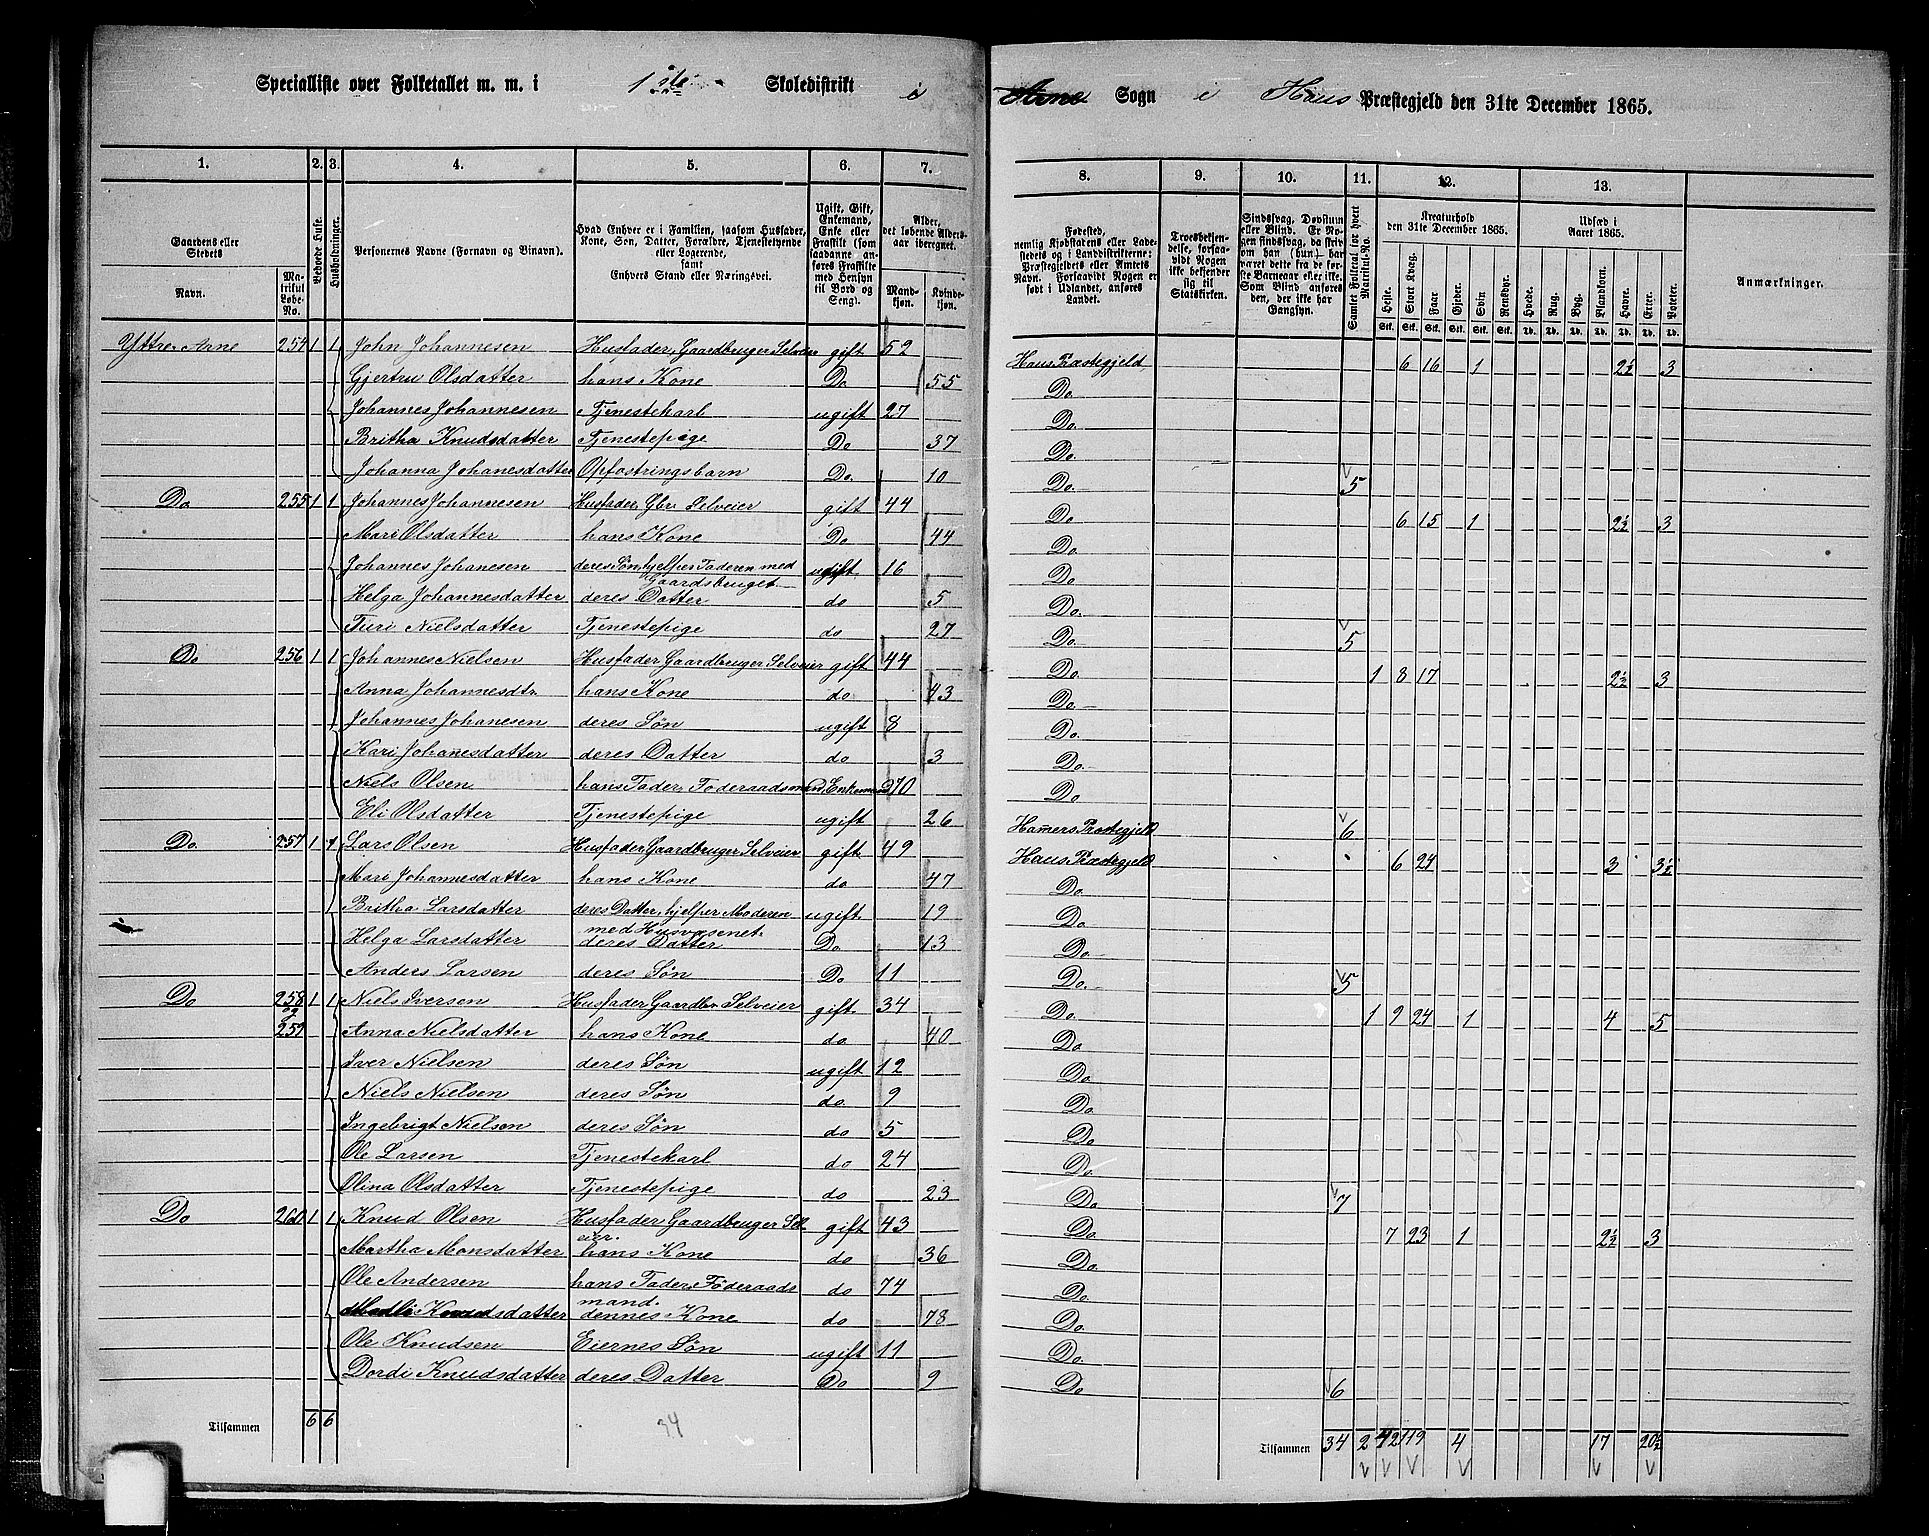 Specialliste over Folketallet m. m. i 1ste Skoledistrikt i Arne Sogn i Haus Præstegjeld den 31te December 1865.
1. 2. 3. 4. 5. 6. 7. 8. 9. 10. 11. 12. 13.
Gaardens eller Stedets Navn. Matrikul Løbe-No. Beboede Huse. Husholdninger.
Personernes Navne (Fornavn og Binavn).
Hvad Enhver er i Familien, saasom Husfader, Kone, Søn, Datter, Forældre, Tjenestetyende eller Logerende, samt Enhvers Stand eller Næringsvei.
Ugift, Gift, Enkemand, Enke eller Fraskilt (som saadanne anføres Fraskilte med Hensyn til Bord og Seng).
Alder, det løbende Aldersaar iberegnet. Mandkjøn. Kvindekjøn.
Fødested, nemlig Kjøbstadens eller Ladestedets og i Landdistrikterne: Præstegjeldets eller Amtets Navn. Forsaavidt Nogen er født i Udlandet, anføres Landet.
Troesbekjendelse, forsaavidt Nogen ikke bekjender sig til Statskirken.
Sindssvag, Døvstum eller Blind. Er Nogen sindssvag, da skriv om han (hun) har været dette fra de første Barneaar eller ikke. Som Blind anføres den, der ikke har Gangsyn.
Samlet Folketal for hvert Matrikul-No.
Kreaturhold den 31te December 1865. Heste. Stort Kvæg. Faar. Gjeder. Svin. Rensdyr.
Udsæd i Aaret 1865. Hvede. Rug. Byg. Blandkorn. Havre. Erter. Poteter.
Anmærkninger.
Yttre Arne 254 1 1 John Johannesen Husfader, Gaardbruger Selveier gift 52 Haus Præstegjeld 6 16 1 2½ 3
Gjertru Olsdatter hans Kone Do 55 Do.
Johannes Johannesen Tjenestekarl ugift 27 Do.
Britha Knudsdatter Tjenestepige Do 37 Do.
Johanna Johanesdatter Opfostringsbarn Do. 10 Do. 5
Do. 255 1 1 Johannes Johannesen Husfader, Gbr Selveier gift 44 Do 6 15 1 2½ 3
Mari Olsdatter hans Kone Do 44 Do
Johannes Johanesen deres Søn hjelper Faderen med Gaardsbruget ugift 16 Do
Helga Johannesdatter deres Datter do 5 Do.
Turi Nielsdatter Tjenestepige do 27 Do. 5
Do 256 1 1 Johannes Nielsen Husfader Gaardbruger Selveier gift 44 Do. 1 8 17 2½ 3
Anna Johannesdtr hans Kone do 43 Do
Johannes Johanesen deres Søn ugift 8 Do
Kari Johanesdatter deres Datter do 3 Do.
Niels Olsen hans Fader, Føderaadsmand, Enkemand 70 Do
Eli Olsdatter Tjenestepige ugift 26 Hamers Præstegjeld 6
Do. 257 1 1 Lars Olsen Husfader Gaardbruger Selveier gift 49 Haus Præstegjeld 6 24 3 3½
Mari Johannesdatter hans Kone do 47 Do
Britha Larsdatter deres Datter, hjelper Moderen med Husvæsenet ugift 19 Do
Helga Larsdatter deres Datter Do 13 Do.
Anders Larsen deres Søn Do 11 Do. 5
Do 258 1 1 Niels Iversen Husfader Gaardbr Selveier gift 34 Do. 1 9 24 1 4 5
og 259 Anna Nielsdatter hans Kone do 40 Do
Iver Nielsen deres Søn ugift 12 Do
Niels Nielsen deres Søn do 9 Do
Ingebrigt Nielsen deres Søn do 5 Do
Ole Larsen Tjenestekarl do 24 Do.
Olina Olsdatter Tjenestepige do 23 Do 7
Do 260 1 1 Knud Olsen Husfader Gaardbruger Selveier. gift 43 Do. 7 23 1 2½ 3
Martha Monsdatter hans Kone do 36 Do
Ole Andersen hans Fader, Føderaadsmand. do 74 Do.
Knudsdatter dennes Kone do 78 Do.
Ole Knudsen Eiernes Søn ugift 11 Do.
Dordi Knudsdatter deres Datter Do 9 Do 6
Tilsammen 6 6 34
Tilsammen 34 2 42 119 4 17 20½